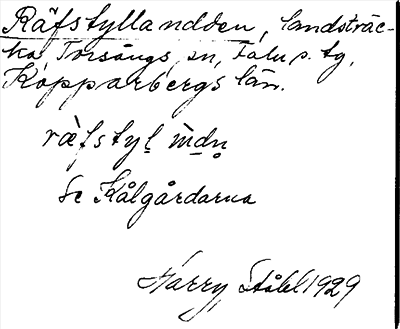 Räfstyllandden, landsträc-
ka, Torsångs sn, Falu s. tg,
Kopparbergs län.
ræ̀fstyl
Se Kålgårdarna
Harry Ståhl 1929